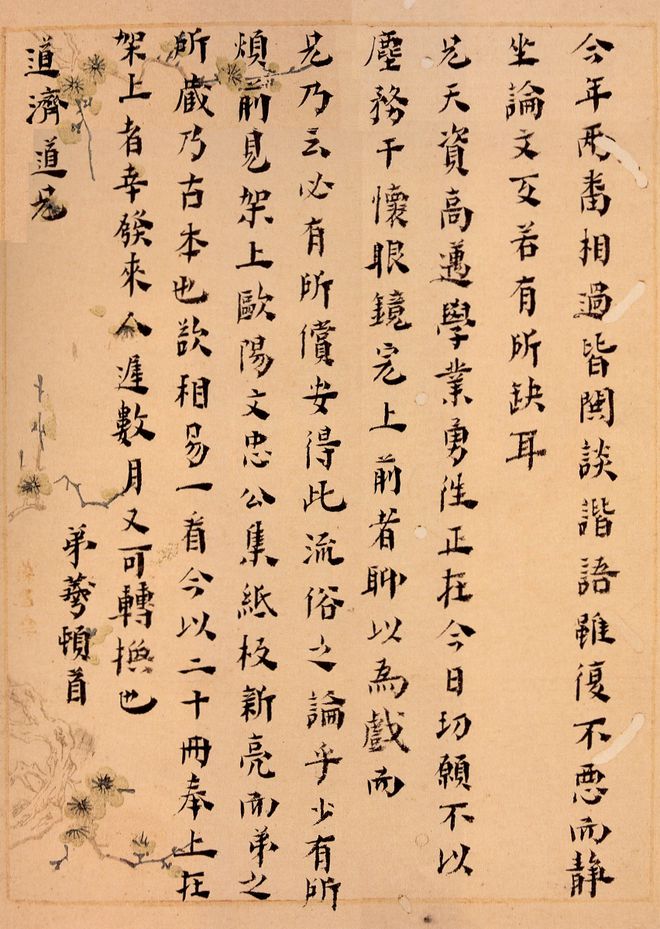 今年两番相過皆閒談諧語雖復不惡而靜
坐論文又若有所缺耳
兄天資高邁學業勇進正在今日切願不以
塵務干懷眼鏡完上前者聊以為戲而
兄乃云必有所償安得此流俗之論乎少有所
煩前見架上歐陽文忠公集紙板新亮而弟之
所藏乃古本也欲相易一看今以二十冊奉上在
架上者幸發來人遲數月又可轉換也
道濟道兄
弟 頓首